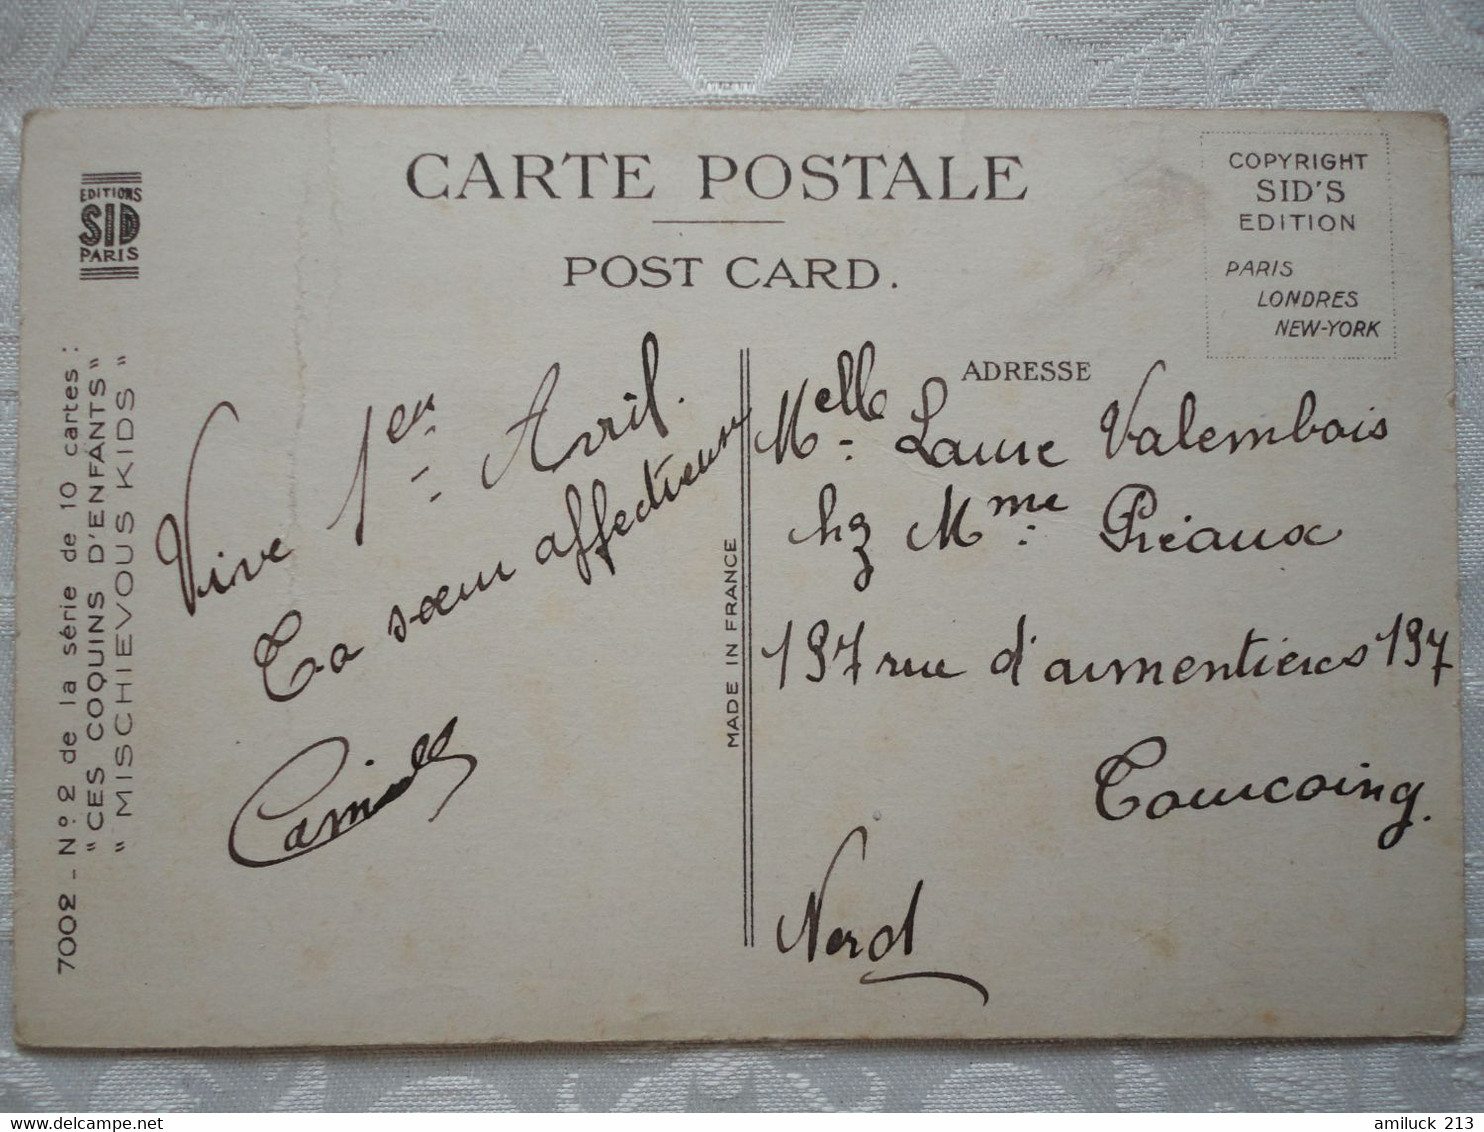 CARTE POSTALE
POST CARD.
EDITIONS
SID
PARIS
COPYRIGHT
SID'S
EDITION
PARIS
LONDRES
NEW-YORK
7002 - N° 2 de la série de 10 cartes :
"CES COQUINS D'ENFANTS"
"MISCHIEVOUS KIDS"
Vive 1er Avril.
Ta sœur affectueuse
Camille
MADE IN FRANCE
ADRESSE
Melle Laure Valembois
chz Mme Préaux
197 rue d'armentières 197
Tourcoing.
Nord
amiluck 213